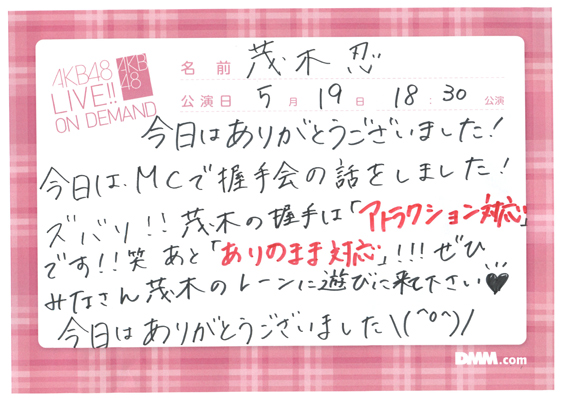 AKB48
LIVE!!
ON DEMAND
AKB
48
名前 茂木忍
公演日 5月19日 18:30公演
今日はありがとうございました!
今日は、MCで握手会の話をしました!
ズバリ!!茂木の握手は「アトラクション対応」
です!!笑 あと「ありのまま対応」!!!ぜひ
みなさん茂木のレーンに遊びに来て下さい♥
今日はありがとうございました\(^o^)/
DMM.com